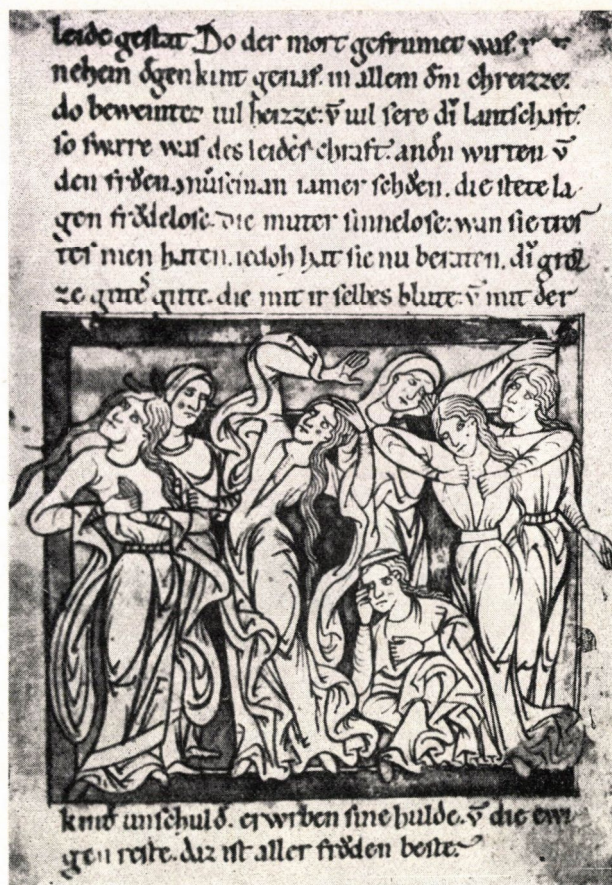 leide gestat Do der mort gefrumet was.
nehein ogen kint genas. in allem dem chreizze.
do beweinter uil heizze. v̄ uil sere di lantschaft.
so swarre was des leides chraft. andn wirten v̄
den froͤen. muͤsein an iamer schoͤen. die stete la-
gen froͤdelose. die muter sinnelose. wan sie tros
tes men haten. iedoh hat sie nu beraten. di groz
ze gute. die mit ir selbes blute. v̄ mit der
kind unschuld. erwrben sine hulde. v̄ die ewi
gen reste. daz ist aller froͤden beste.